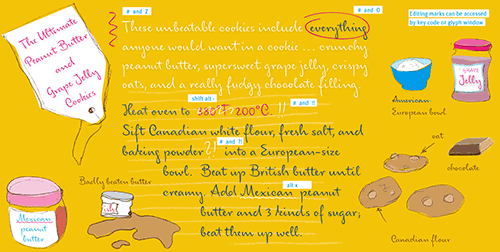 The Ultimate
Peanut Butter
and
Grape Jelly
Cookies
# and 2
# and 0
These unbeatable cookies include everything
anyone would want in a cookie ... crunchy
peanut butter, supersweet grape jelly, crispy
oats, and a really fudgy chocolate filling.
shift alt -
# and !!
Heat oven to 380°F 200°C. !!
Sift Canadian white flour, fresh salt, and
# and ?!
baking powder ?! into a European-size
bowl. Beat up British butter until
alt x
creamy. Add Mexican peanut
butter and 3 kinds of sugar;
beat them up well.
Editing marks can be accessed
by key code or glyph window
GRAPE
Jelly
American
European bowl
oat
chocolate
Canadian flour
Badly beaten butter
Mexican
peanut
butter